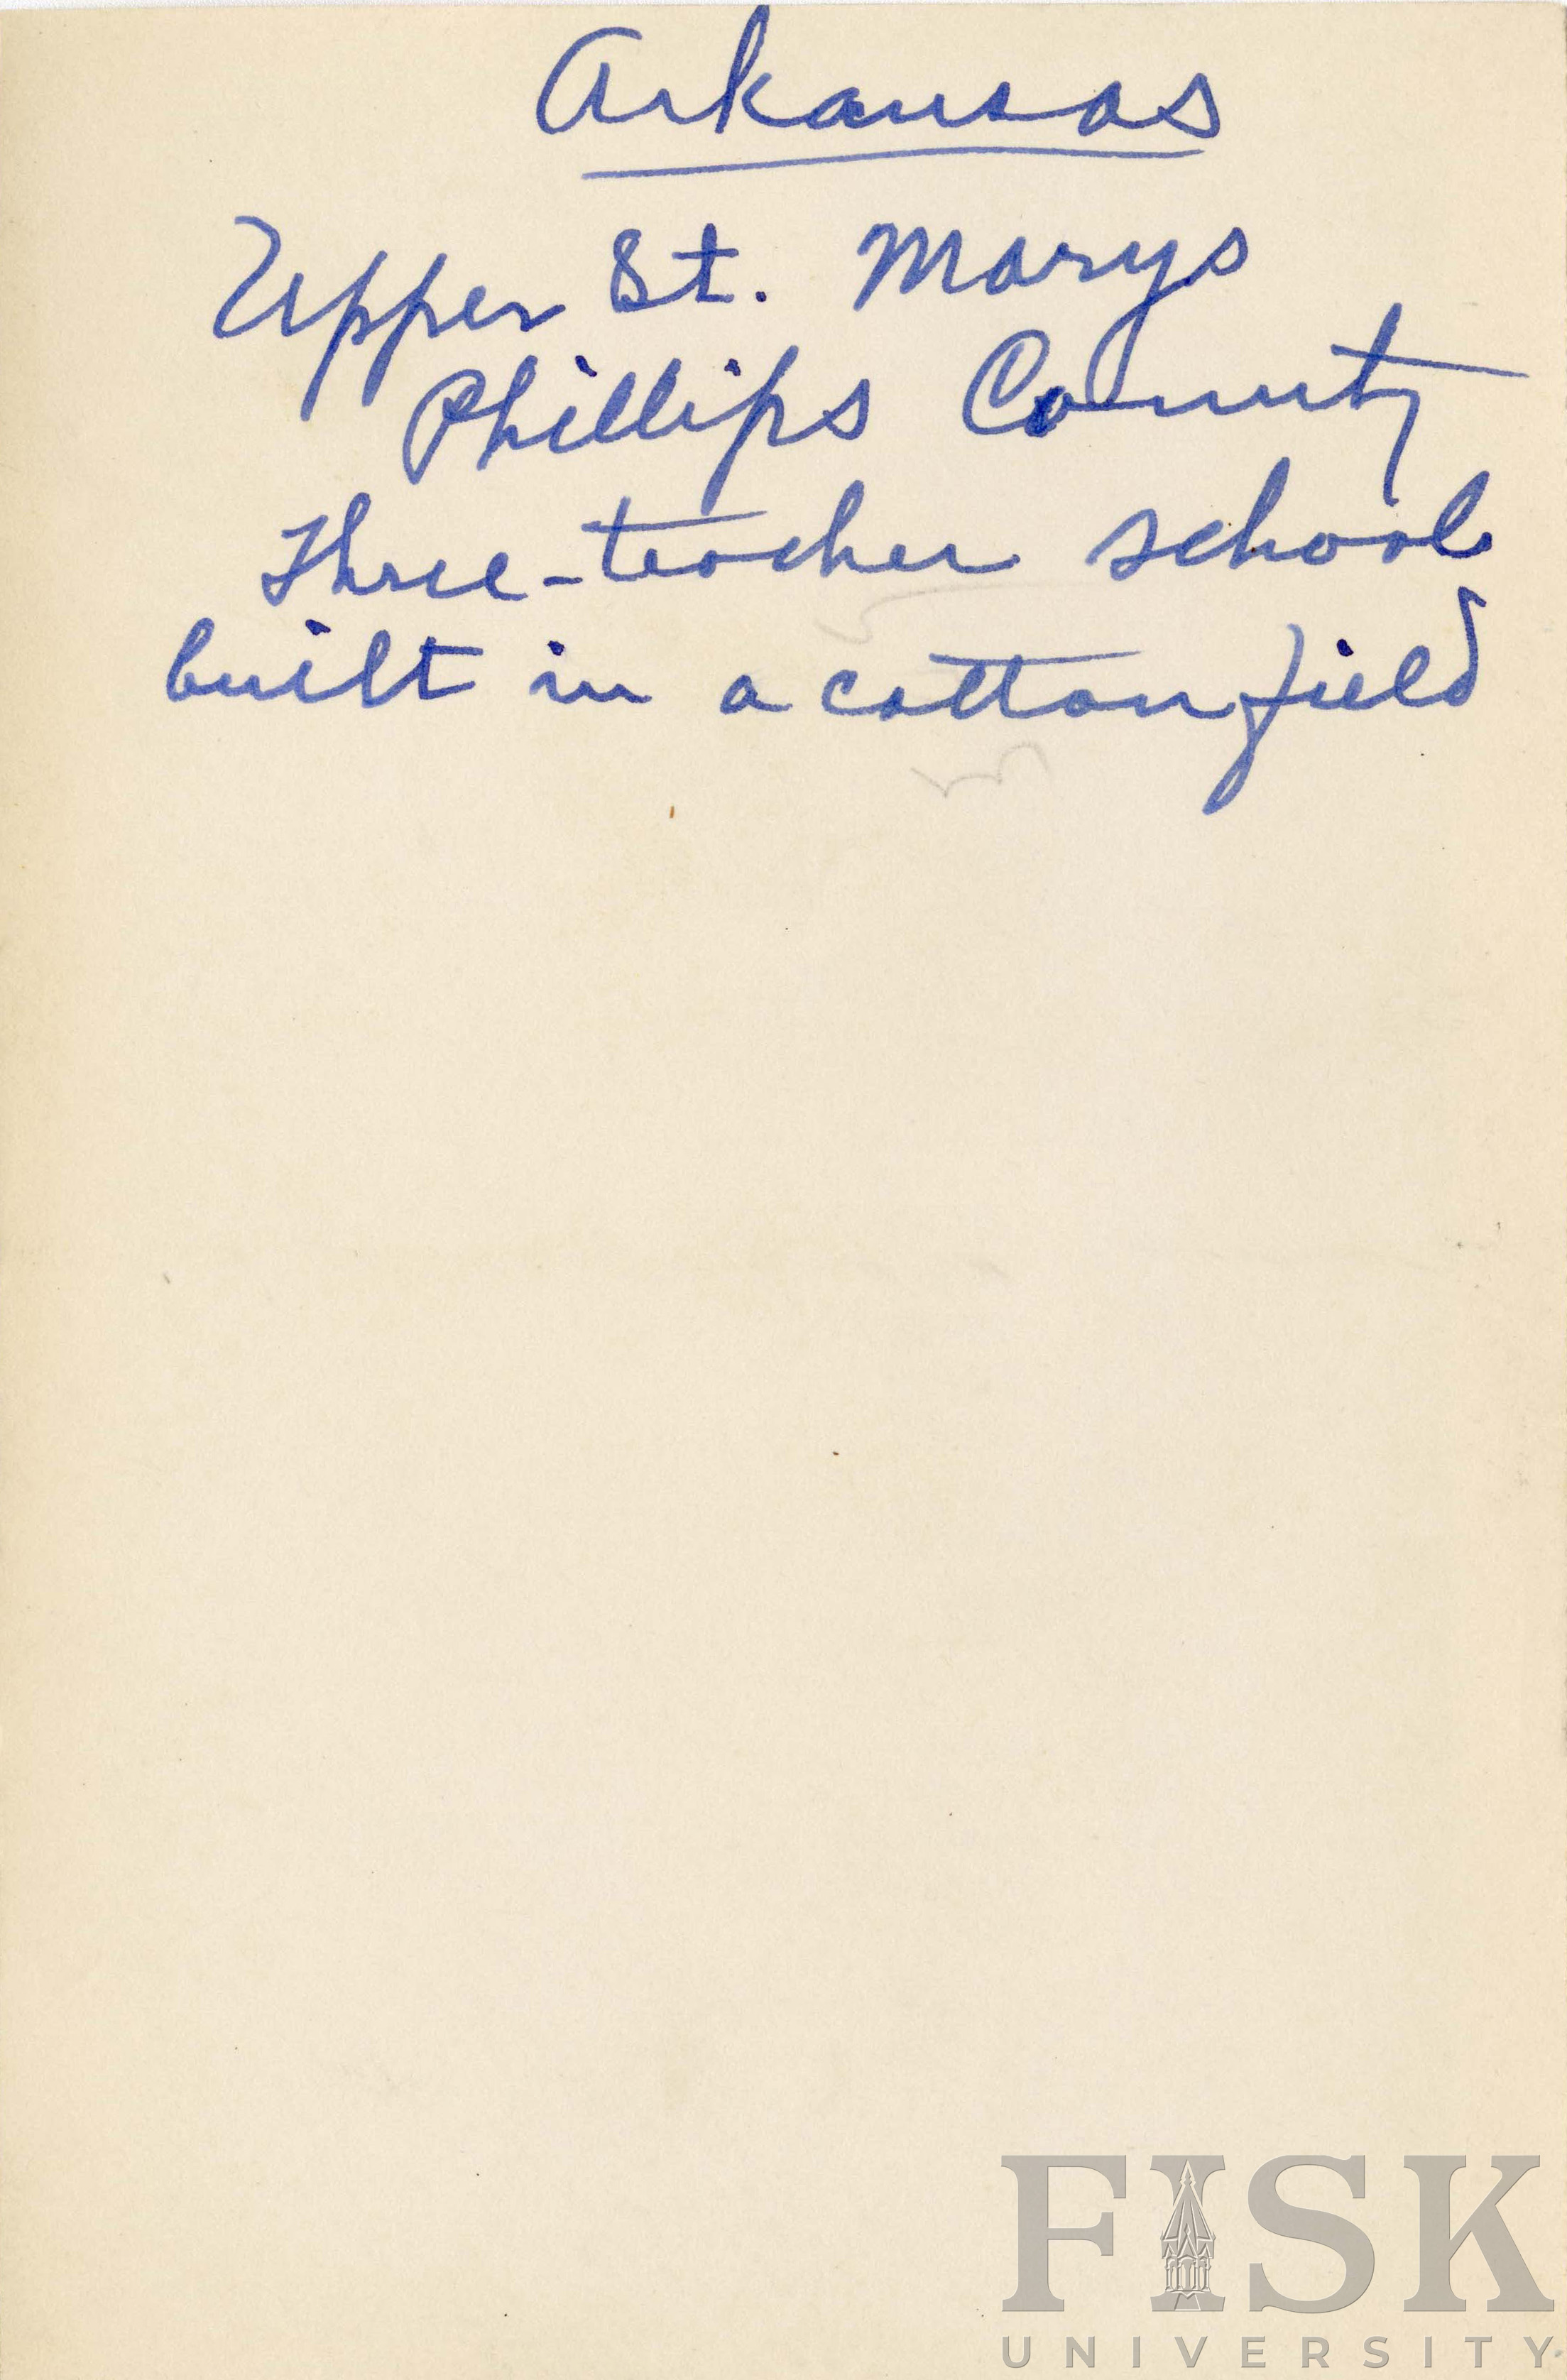 Arkansas
Upper St. Marys
Phillips County
Three-teacher school
built in a cotton field
FISK
UNIVERSITY